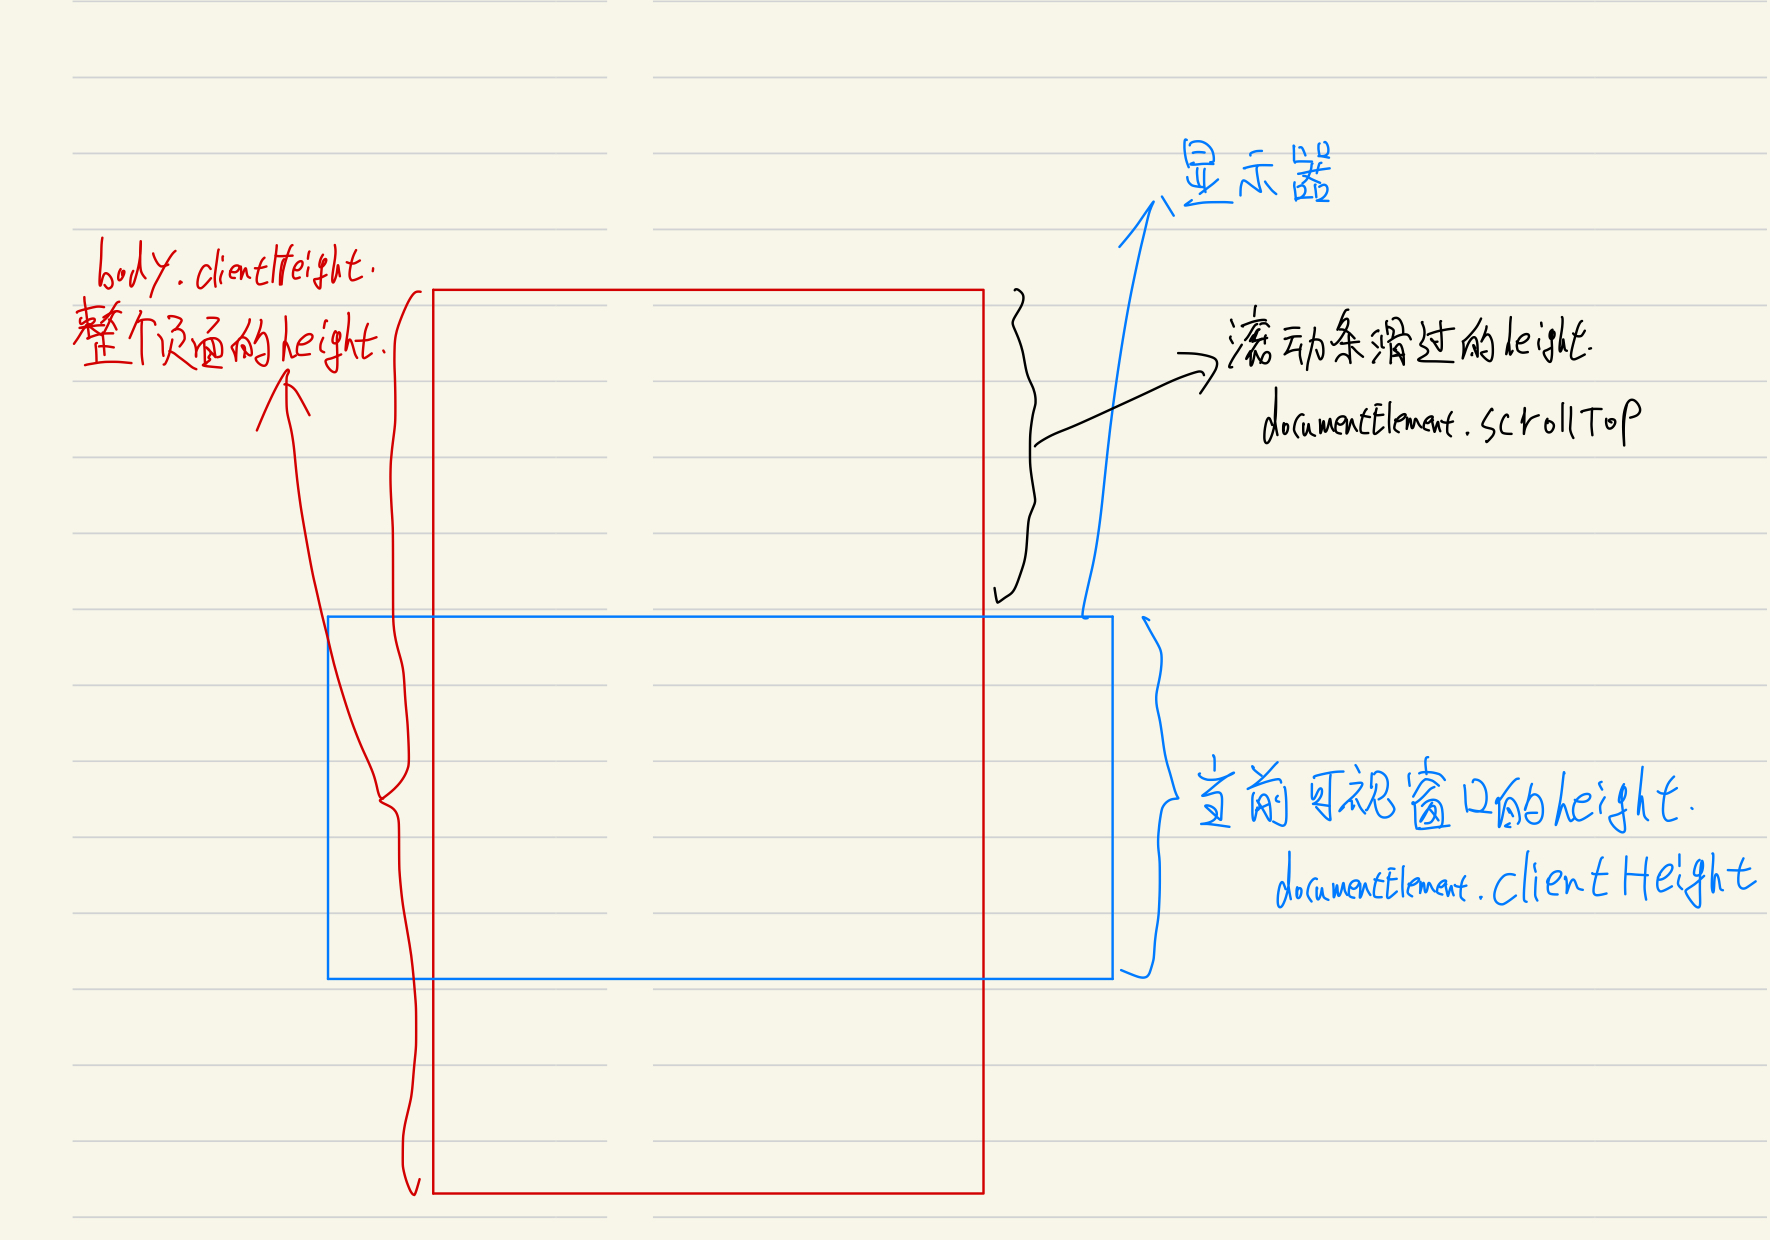 显示器
body.clientHeight.
整个页面的height.
滚动条滑过的height.
documentElement.scrollTop
当前可视窗口的height.
documentElement.clientHeight